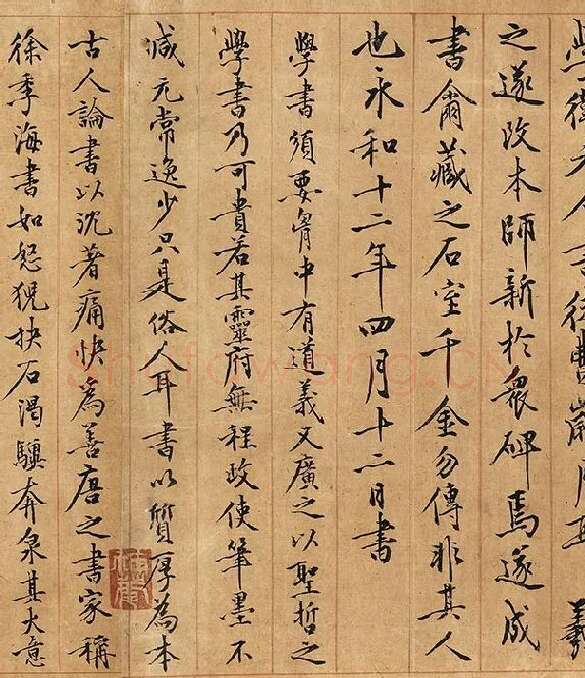 學衛夫人書徒費歲月耳羲
之遂改本師新於眾碑焉遂成
書爾藏之石室千金勿傳非其人
也永和十二年四月十二日書
學書須要胷中有道義又廣之以聖哲之
學書乃可貴若其靈府無程政使筆墨不
減元常逸少只是俗人耳書以質厚為本
古人論書以沈著痛快為善唐之書家稱
徐季海書如怒猊抉石渴驥奔泉其大意
Shufawang.CN